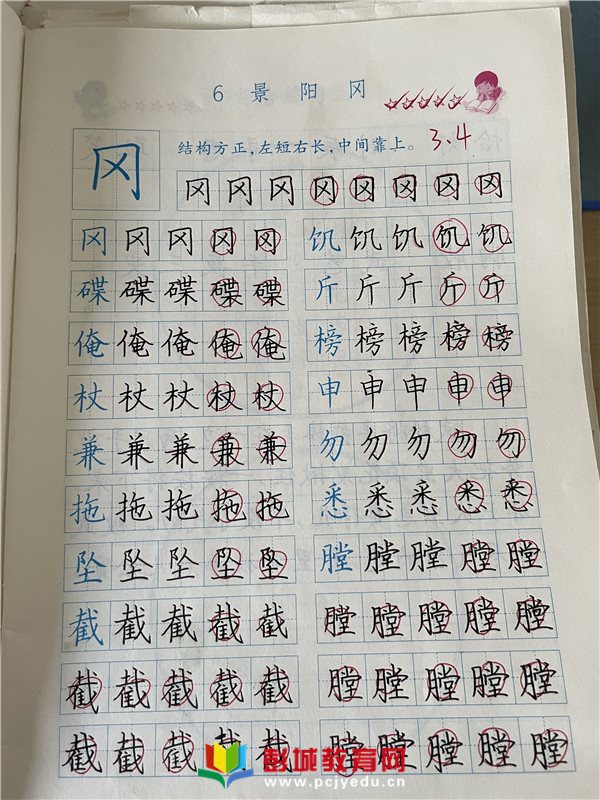 6 景 阳 冈
冈
结构方正，左短右长，中间靠上。
3.4
冈 冈 冈 冈 冈 冈 冈 冈
冈 冈 冈 冈 冈 饥 饥 饥 饥 饥
碟 碟 碟 碟 碟 斤 斤 斤 斤 斤
俺 俺 俺 俺 俺 榜 榜 榜 榜 榜
杖 杖 杖 杖 杖 申 申 申 申 申
兼 兼 兼 兼 兼 勿 勿 勿 勿 勿
拖 拖 拖 拖 拖 悉 悉 悉 悉 悉
坠 坠 坠 坠 坠 膛 膛 膛 膛 膛
截 截 截 截 截 膛 膛 膛 膛 膛
截 截 截 截 截 膛 膛 膛 膛 膛
截 截 截 截 截 膛 膛 膛 膛 膛
彭城教育网
www.pcjyedu.cn